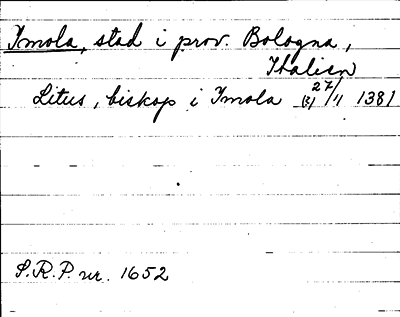 Imola, stad i prov. Bologna,
Italien
Litus, biskop i Imola 27/11 1381
S.R.P. nr. 1652